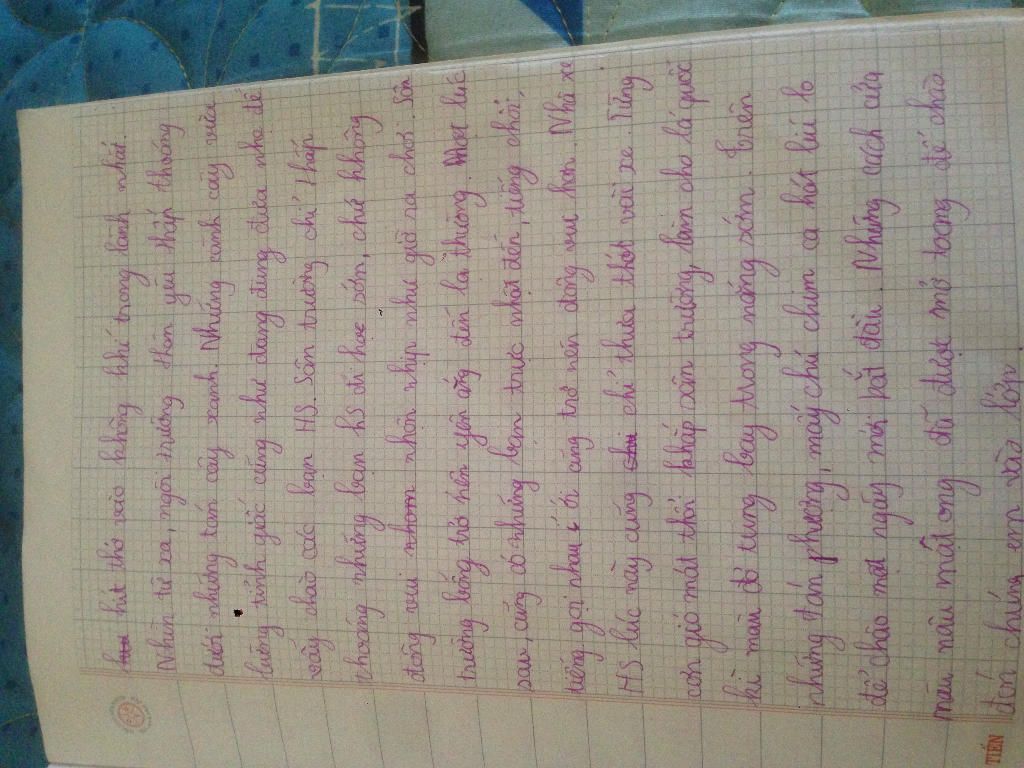 hít thở vào không khí trong lành nhất.
Nhìn từ xa, ngôi trường thân yêu thấp thoáng
dưới những tán cây xanh. Những cành cây vừa
tỉnh giấc cũng như đang đung đưa nhẹ để
vẫy chào các bạn HS. Sân trường chỉ thấp
thoáng những bạn hs đi học sớm, chứ không
đông vui nhộn nhịp như giờ ra chơi. Sân
trường bỗng trở nên yên ắng đến lạ thường. Một lúc
sau, cũng có những bạn trực nhật đến, tiếng chổi,
tiếng gọi nhau í ới cũng trở nên đông vui hơn. Nhà xe
HS lúc này cũng chỉ thưa thớt vài xe. Từng
cơn gió mát thổi khắp sân trường, làm cho lá quốc
kì màu đỏ tung bay trong nắng sớm. Trên
những tán phượng, mấy chú chim ca hát líu lo
để chào một ngày mới bắt đầu. Những cách cửa
màu nâu mật ong đã được mở toang để chào
đón chúng em vào lớp
TIẾN